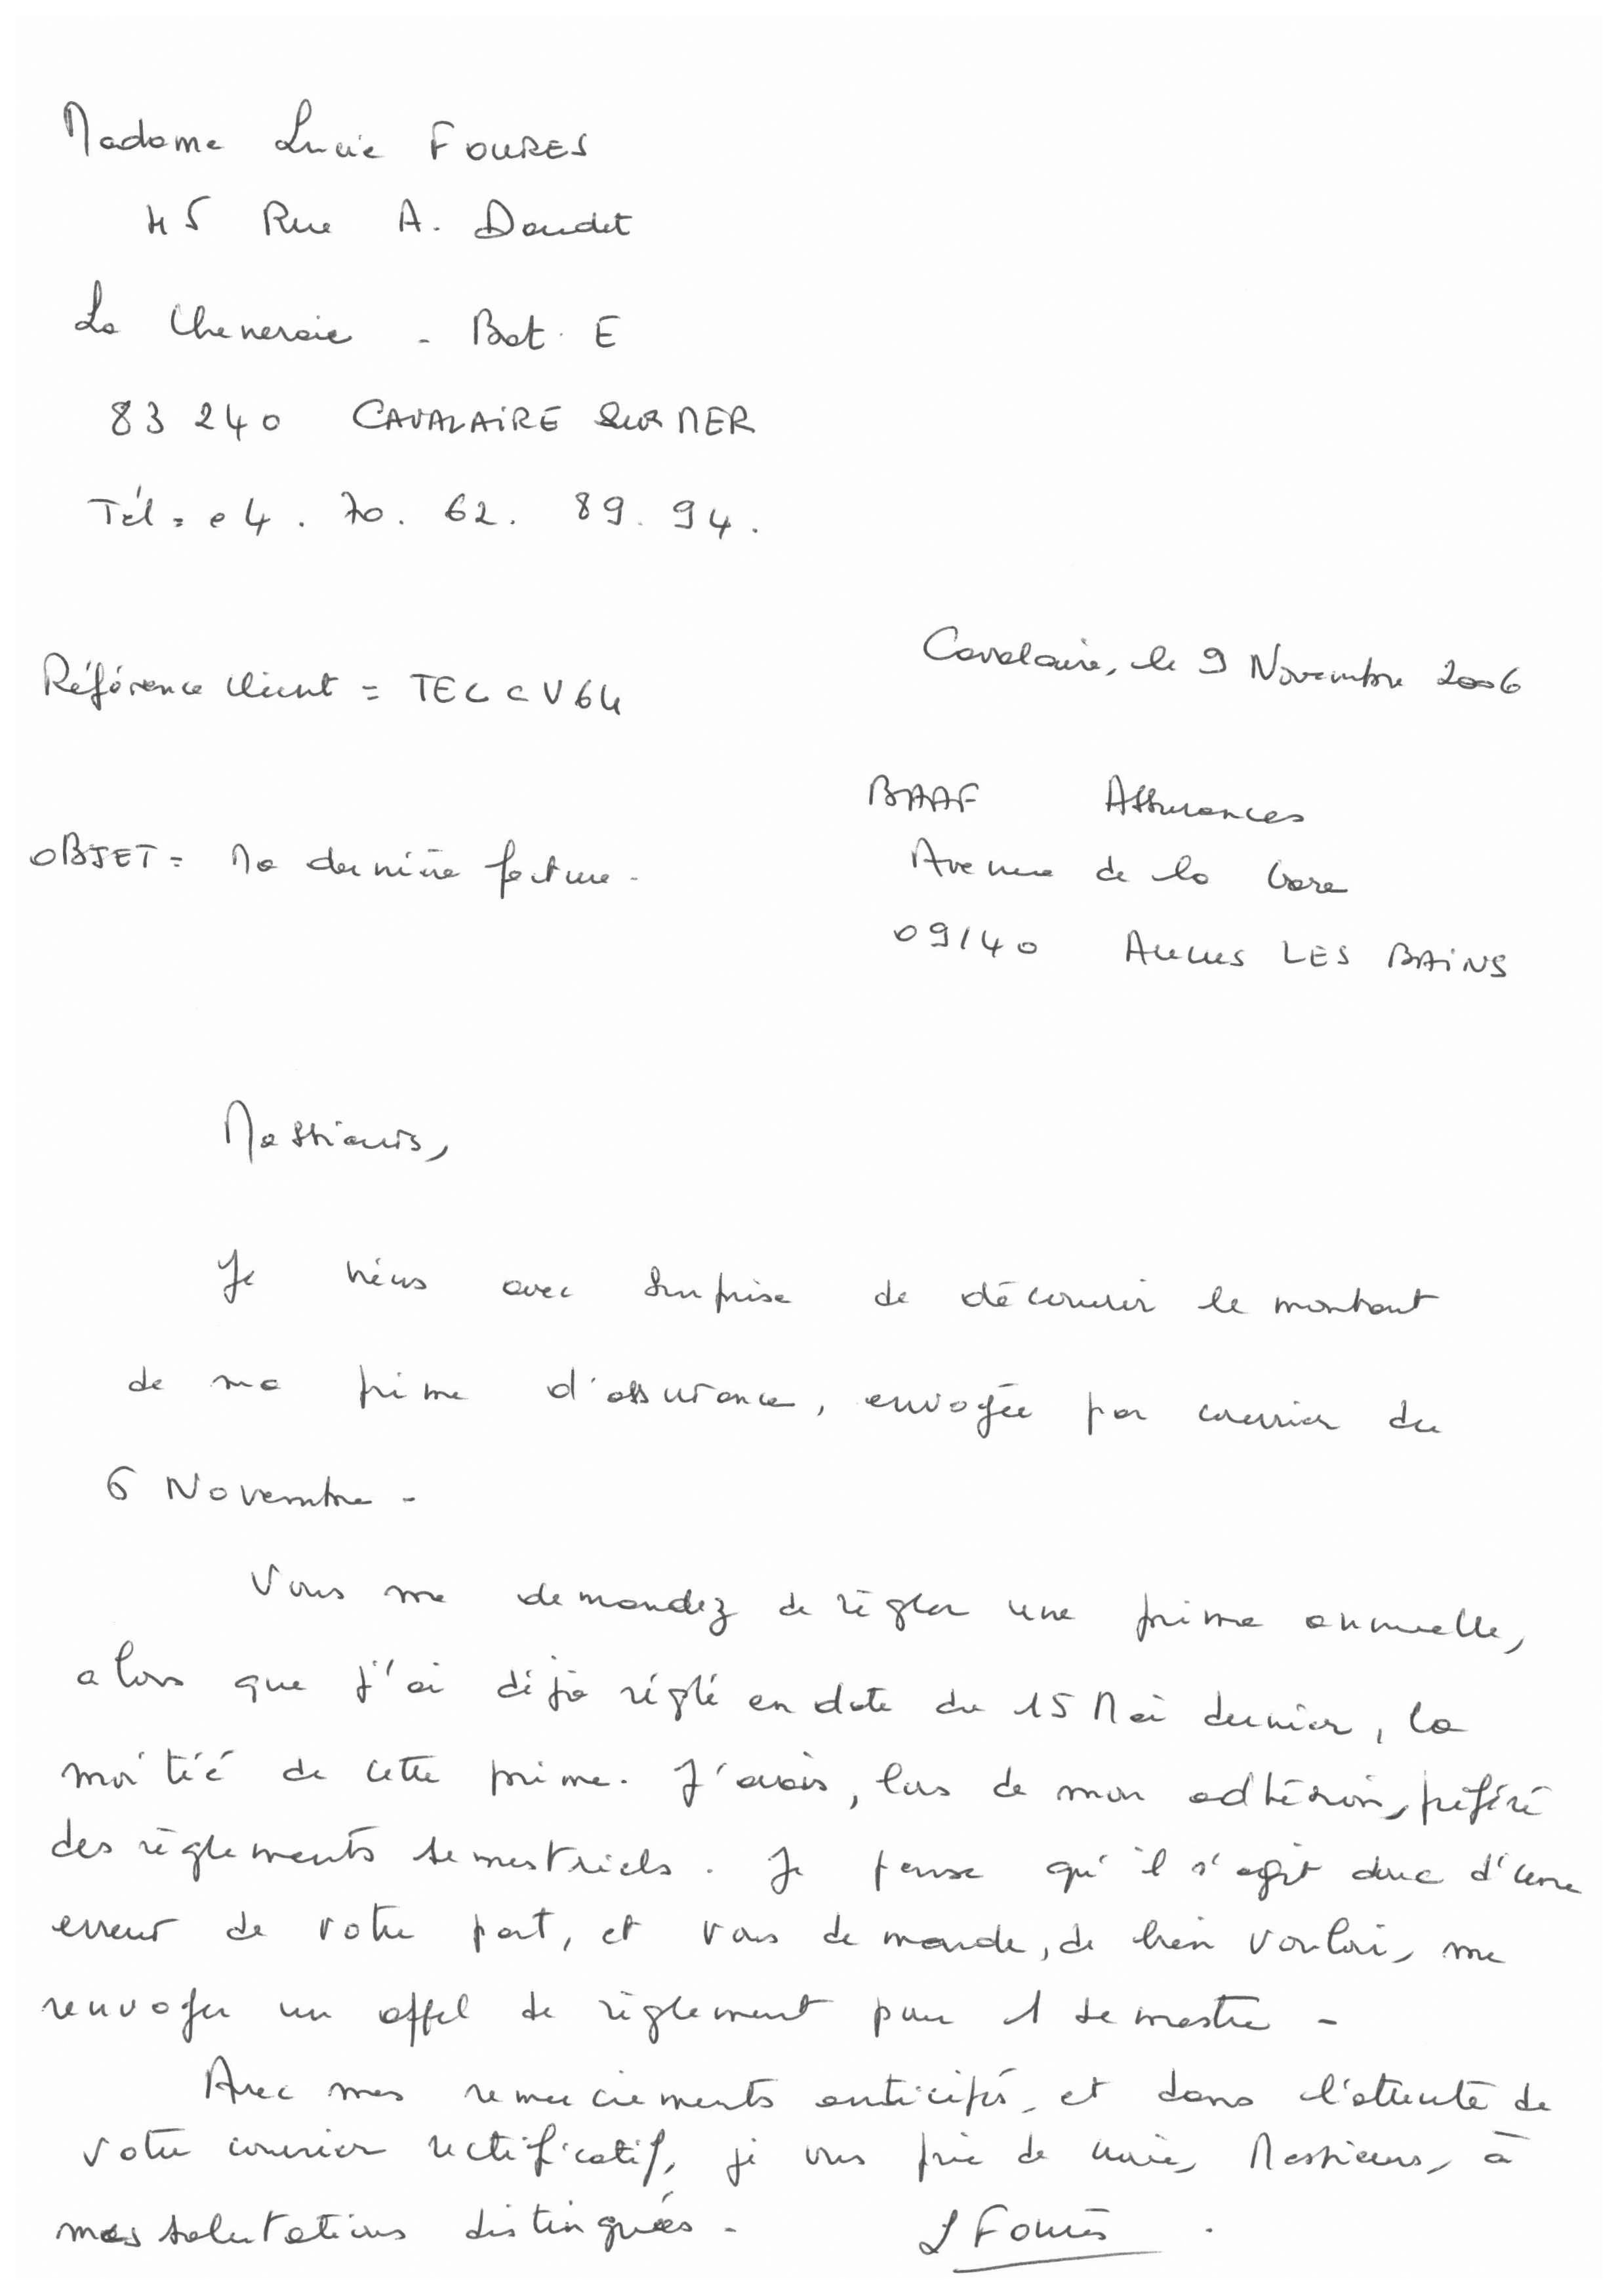 Madame Lucie FOURES
45 Rue A. Daudet
La Cheneraie - Bat. E
83 240 CAVALAIRE SUR MER
Tél = 04. 70. 62. 89. 94.
Cavalaire, le 9 Novembre 2006
Référence client = TECCV64
BAAF Assurances
OBJET = Ma dernière facture -
Avenue de la Gare
09140 AULUS LES BAINS
Messieurs,
Je viens avec surprise de découvrir le montant
de ma prime d'assurance, envoyée par courrier du
6 Novembre -
Vous me demandez de règler une prime annuelle,
alors que j'ai déjà réglé en date du 15 Mai dernier, la
moitié de cette prime. J'avais, lors de mon adhésion, préféré
des règlements semestriels. Je pense qu'il s'agit donc d'une
erreur de votre part, et vous demande, de bien vouloir me
renvoyer un appel de règlement pour 1 semestre -
Avec mes remerciements anticipés, et dans l'attente de
votre courrier rectificatif, je vous prie de croire, Messieurs, à
mes salutations distinguées - L Fourès.